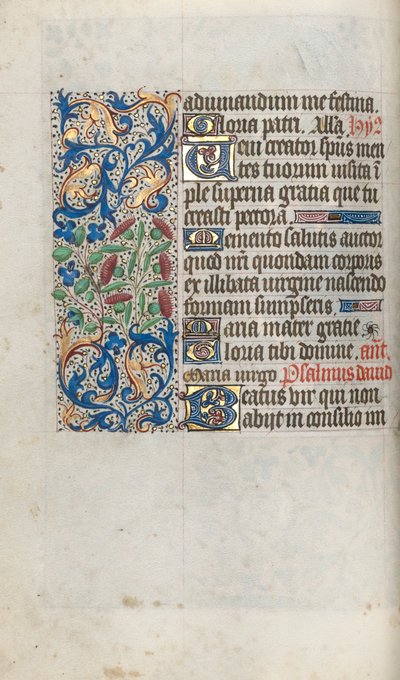 adiuuandum me festina.
Gloria patri. Alla. hyꝰ
Veni creator spūs men
tes tuorum visita ī
ple superna gratia que tu
creasti pectora
Memento salutis auctor
quod nr̄i quondam corporis
ex illibata virgine nascendo
formam sumpseris.
Maria mater gratie
Gloria tibi domine. an̄t.
Maria virgo Psalmus dauid
Beatus vir qui non
abijt in consilio im